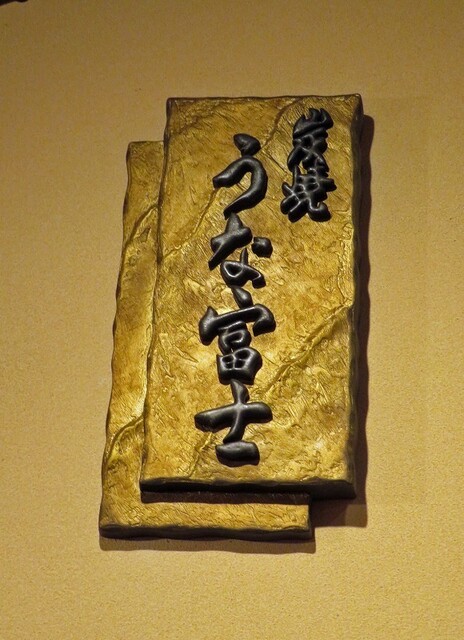 炭焼
うな富士